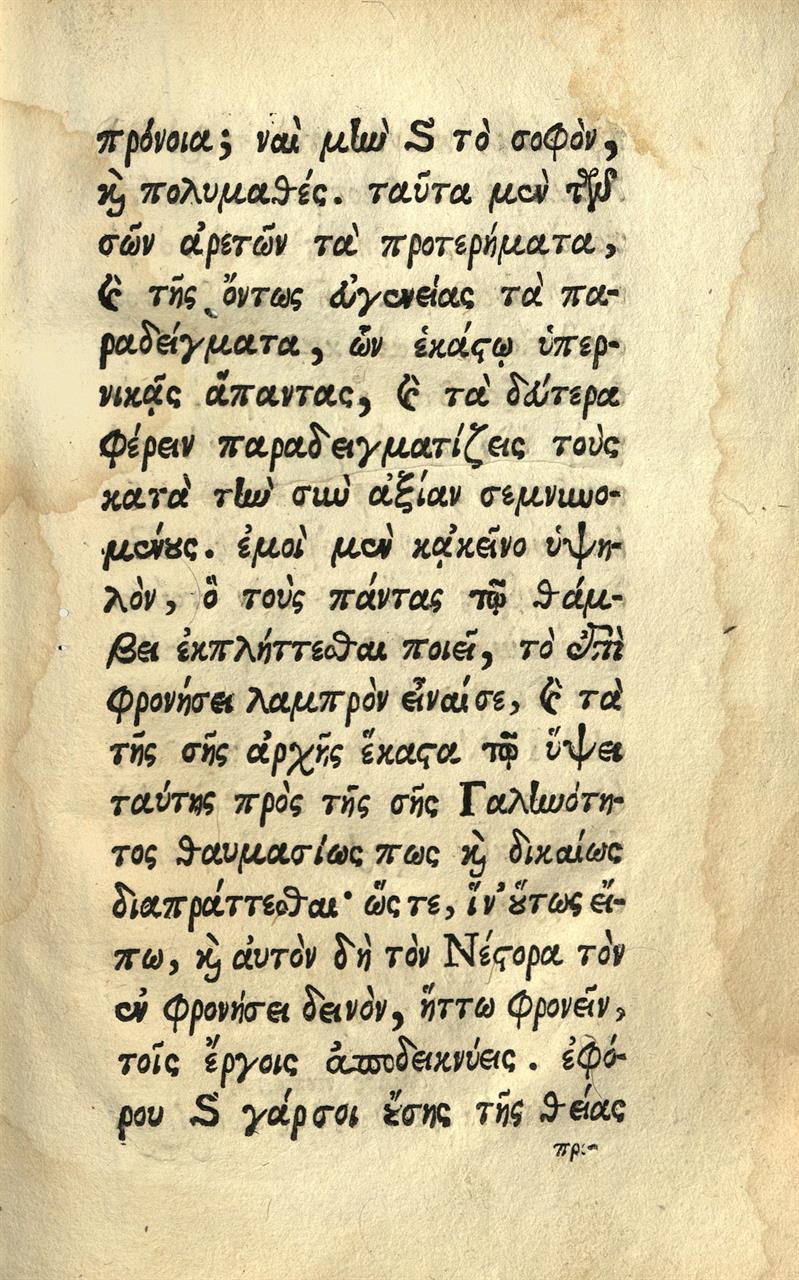 πρόνοια; ναὶ μὴν καὶ τὸ σοφὸν,
καὶ πολυμαθές. ταῦτα μὲν τῶν
σῶν ἀρετῶν τὰ προτερήματα,
καὶ τῆς ὄντως εὐγενείας τὰ πα-
ραδείγματα, ὧν ἑκάστῳ ὑπερ-
νικᾷς ἅπαντας, καὶ τὰ δεύτερα
φέρειν παραδειγματίζεις τοὺς
κατὰ τὴν σὴν ἀξίαν σεμνυνο-
μένους. ἐμοὶ μὲν κᾀκεῖνο ὑψη-
λὸν, ὃ τοὺς πάντας τῷ θάμ-
βει ἐκπλήττεσθαι ποιεῖ, τὸ ἐπὶ
φρονήσει λαμπρὸν εἶναίσε, καὶ τὰ
τῆς σῆς ἀρχῆς ἕκαστα τῷ ὕψει
ταύτης πρὸς τῆς σῆς Γαληνότη-
τος θαυμασίως πως καὶ δικαίως
διαπράττεσθαι· ὥς τε, ἵν' οὕτως εἴ-
πω, καὶ αὐτὸν δὴ τὸν Νέστορα τὸν
ἐν φρονήσει δεινὸν, ἥττω φρονεῖν,
τοῖς ἔργοις ἀποδεικνύεις. ἐφό-
ρου καὶ γάρσοι οὔσης τῆς θείας
προ-